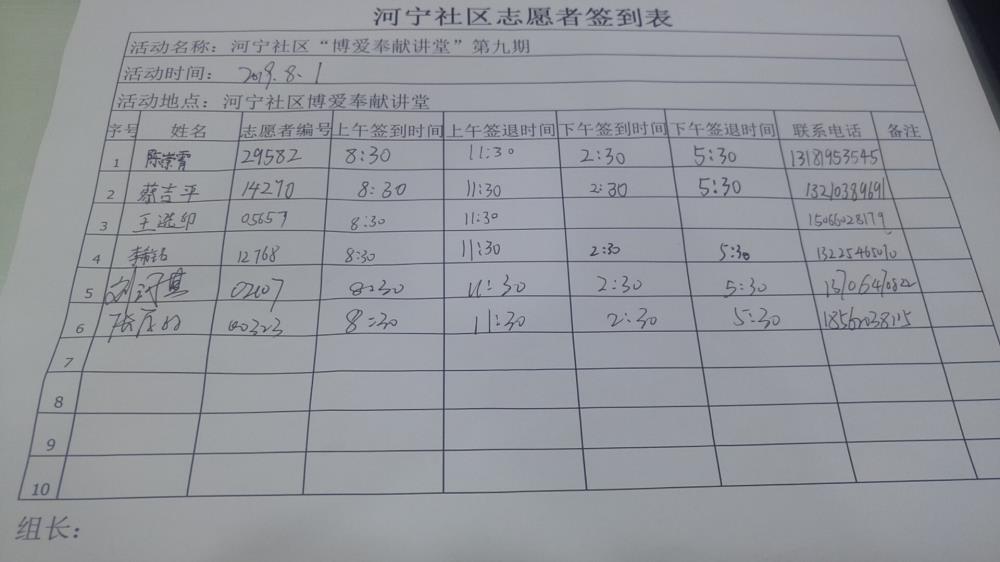 河宁社区志愿者签到表
活动名称：河宁社区“博爱奉献讲堂”第九期
活动时间：2019.8.1
活动地点：河宁社区博爱奉献讲堂
序号 姓名 志愿者编号 上午签到时间 上午签退时间 下午签到时间 下午签退时间 联系电话 备注
1 陈崇霄 29582 8:30 11:30 2:30 5:30 13181953545
2 蔡吉平 14270 8:30 11:30 2:30 5:30 13210389691
3 05657 8:30 11:30 15066028179
4 12768 8:30 11:30 2:30 5:30
5 8:30 11:30 2:30 5:30
6 00323 8:30 11:30 2:30 5:30
7
8
9
10
组长：